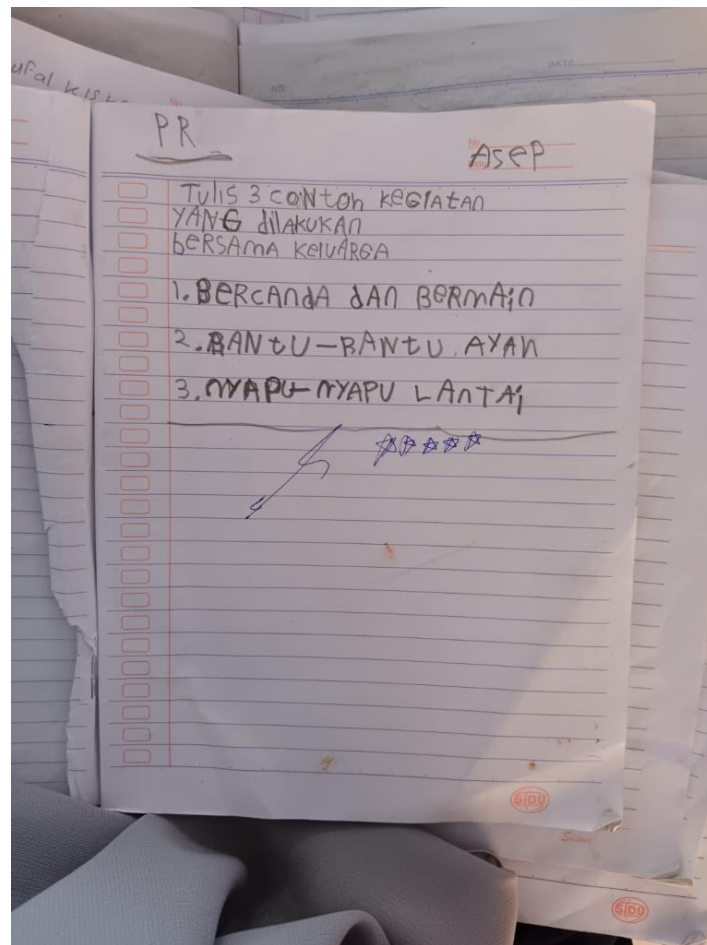 PR
Asep
Tulis 3 contoh kegiatan
YANG dilakukan
bersama keluarga
1. Bercanda dan bermain
2. BANtU-BANtU AYAH
3. NYAPU-NYAPU LANTAi
DATE
NO:
SiDU
SiDU